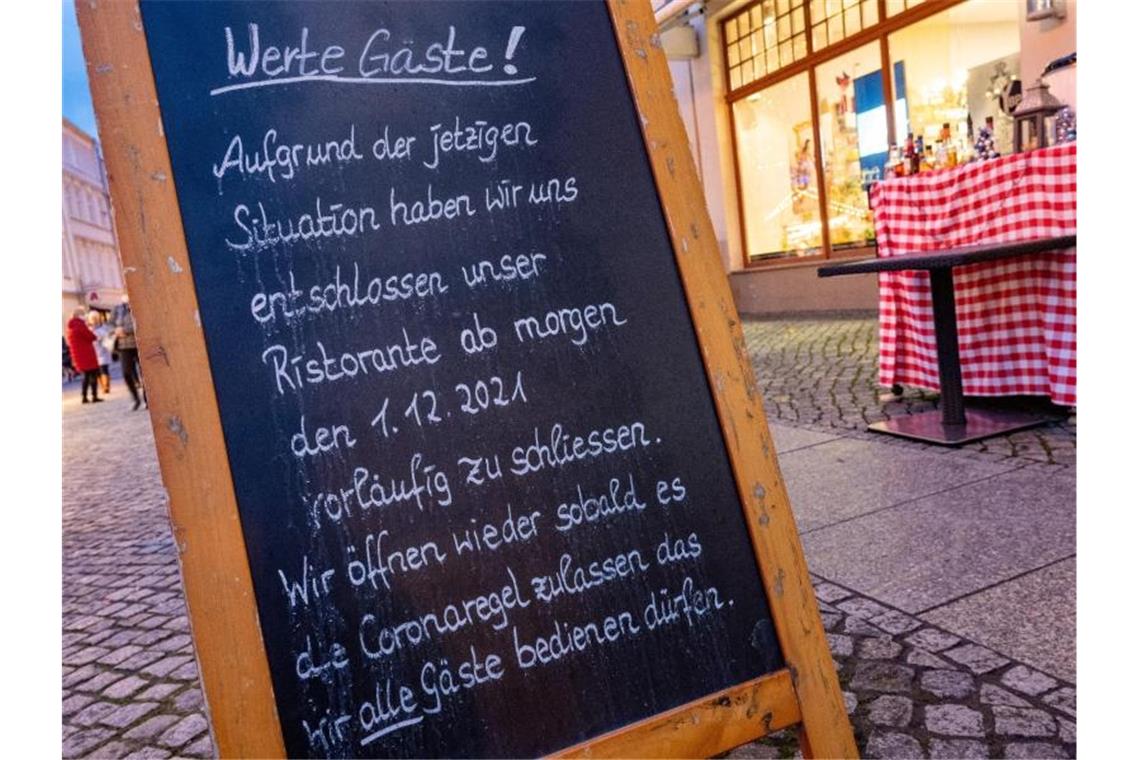 Werte Gäste!
Aufgrund der jetzigen
Situation haben wir uns
entschlossen unser
Ristorante ab morgen
den 1.12.2021
vorläufig zu schliessen.
Wir öffnen wieder sobald es
die Coronaregel zulassen das
wir alle Gäste bedienen dürfen.